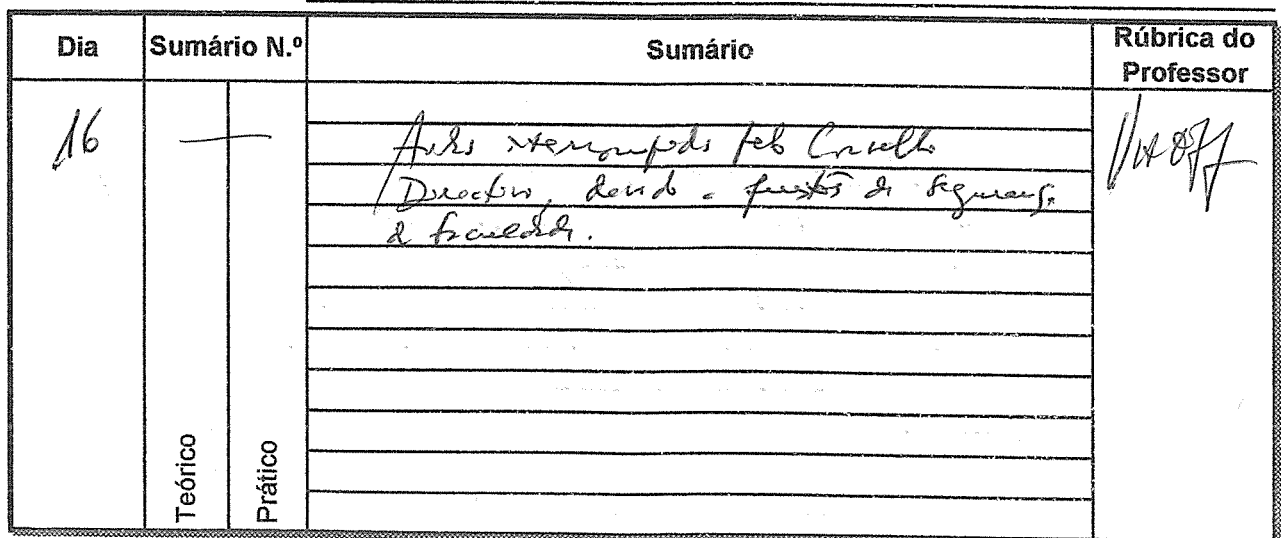 Dia Sumário N.º Sumário Rúbrica do Professor
16 — Aulas interrompidas pelo Conselho
Directivo, devido a questões de segurança
da faculdade.
Teórico Prático